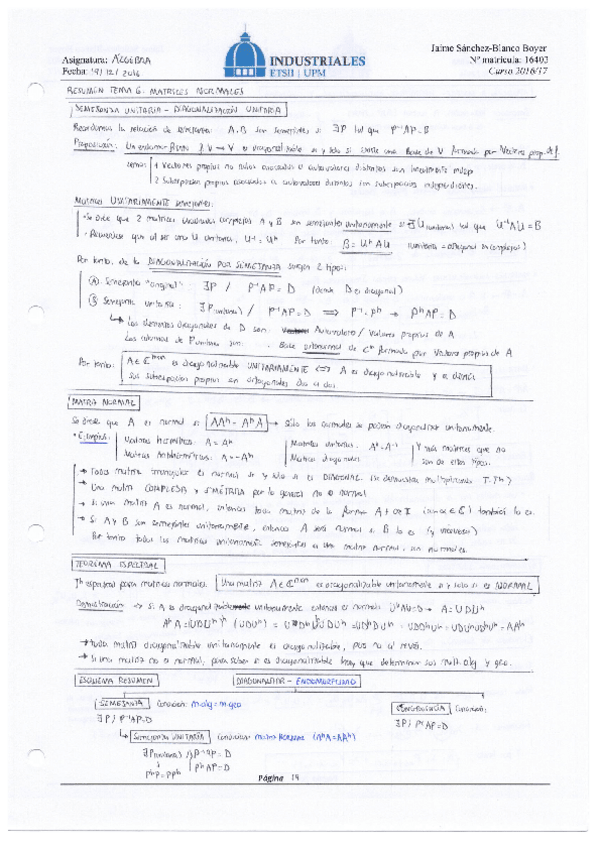 Asignatura: ALGEBRA
Fecha: 19/12/2016
INDUSTRIALES
ETSII | UPM
Jaime Sánchez-Blanco Boyer
Nº matrícula: 16403
Curso 2016/17
RESUMEN TEMA 6. MATRICES NORMALES
SEMEJANZA UNITARIA - DIAGONALIZACIÓN UNITARIA
Recordamos la relación de semejanza: A, B son semejantes si ∃P tal que P⁻¹AP = B
Proposición: Un endomorfismo f: V → V es diagonalizable si y solo si existe una Base de V formada por Vectores prop. de f.
1 Vectores propios no nulos asociados a autovalores distintos son linealmente indep
2 Subespacios propios asociados a autovalores distintos son subespacios independientes.
MATRICES UNITARIAMENTE SEMEJANTES:
· Se dice que 2 matrices cuadradas complejas A y B son semejantes unitariamente si ∃U unitaria tal que U⁻¹AU = B
· Recuérdese que al ser una U unitaria, U⁻¹ = Uʰ Por tanto: B = UʰAU (unitaria = ortogonal en complejos)
Por tanto, de la DIAGONALIZACIÓN POR SEMEJANZA surgen 2 tipos:
A Semejanza "original": ∃P / P⁻¹AP = D (donde D es diagonal)
B Semejanza unitaria: ∃P unitaria / P⁻¹AP = D ⟹ P⁻¹ = Pʰ → PʰAP = D
↳ Los elementos diagonales de D son Autovalores / Valores propios de A
Las columnas de P unitaria son Base ortonormal de Cⁿ formada por Vectores propios de A
Por tanto: A ∈ Cⁿˣⁿ es diagonalizable UNITARIAMENTE ⟺ A es diagonalizable y además
sus subespacios propios son ortogonales dos a dos.
MATRIZ NORMAL
Se dice que A es normal si AAʰ = AʰA → sólo las normales se pueden diagonalizar unitariamente.
· Ejemplos: Matrices hermíticas: A = Aʰ Matrices unitarias: Aʰ = A⁻¹ Y más matrices que no
Matrices Antihermíticas: A = -Aʰ Matrices diagonales son de estos tipos.
→ Toda matriz triangular es normal si y solo si es DIAGONAL (se demuestra multiplicando T·Tʰ)
→ Una matriz COMPLEJA y SIMÉTRICA por lo general no es normal
→ Si una matriz A es normal, entonces toda matriz de la forma A + αI (con α ∈ C) también lo es.
→ Si A y B son semejantes unitariamente, entonces A será normal si B lo es (y viceversa)
Por tanto todas las matrices unitariamente semejantes a una matriz normal, son normales.
TEOREMA ESPECTRAL
Th espectral para matrices normales: Una matriz A ∈ Cⁿˣⁿ es diagonalizable unitariamente si y solo si es NORMAL
Demostración → si A es diagonalizable unitariamente entonces es normal: UʰAU = D → A = UDUʰ
→ toda matriz diagonalizable unitariamente es diagonalizable, pero no al revés.
→ Si una matriz no es normal, para saber si es diagonalizable hay que determinar sus mult. alg y geo.
ESQUEMA RESUMEN
DIAGONALIZAR - ENDOMORFISMO
SEMEJANZA Condición: m.alg = m.geo
∃P / P⁻¹AP = D
CONGRUENCIA Condición:
∃P / PᵗAP = D
↳ SEMEJANZA UNITARIA Condición: matriz NORMAL (AʰA = AAʰ)
∃P unitaria / P⁻¹AP = D
PʰAP = D
Página 19